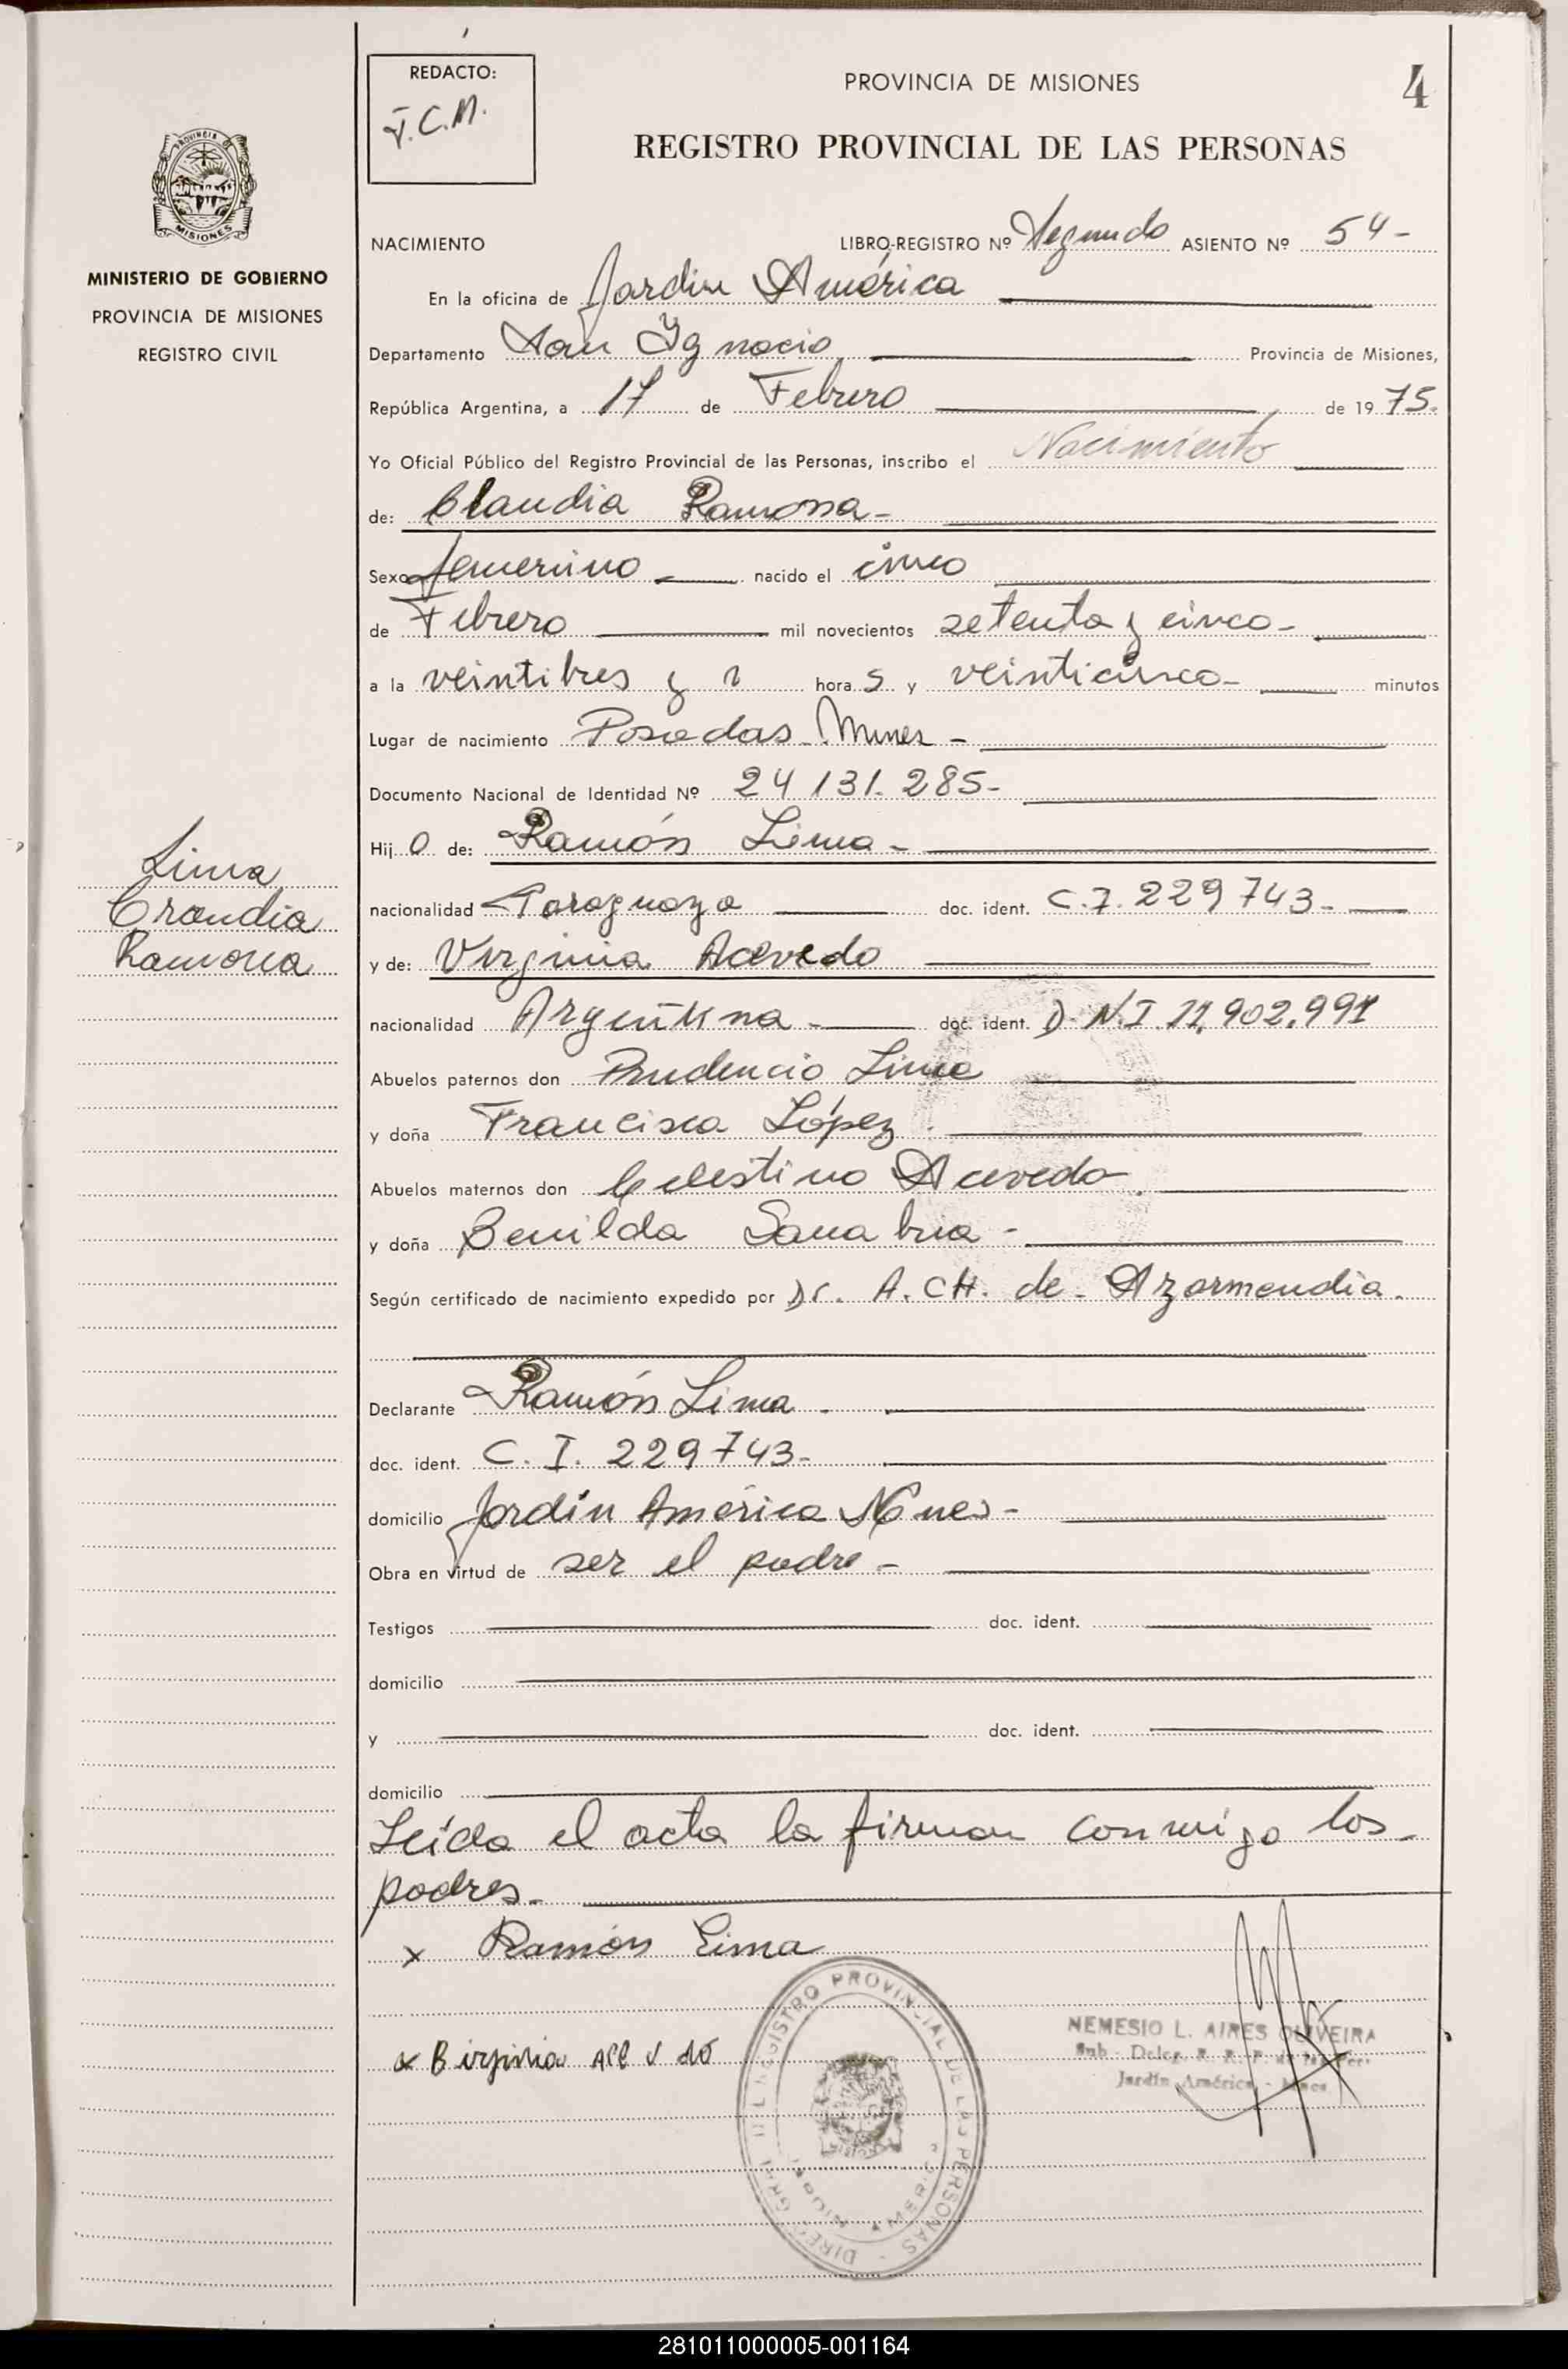 REDACTO:
J.C.M.
PROVINCIA DE MISIONES
4
REGISTRO PROVINCIAL DE LAS PERSONAS
PROVINCIA DE
MISIONES
MINISTERIO DE GOBIERNO
PROVINCIA DE MISIONES
REGISTRO CIVIL
NACIMIENTO LIBRO-REGISTRO Nº Segundo ASIENTO Nº 54-
En la oficina de Jardin América
Departamento San Ignacio Provincia de Misiones,
República Argentina, a 17 de Febrero de 1975.
Yo Oficial Público del Registro Provincial de las Personas, inscribo el Nacimiento
de: Claudia Ramona-
Sexo femenino nacido el cinco
de Febrero mil novecientos setenta y cinco-
a la veintitres y hora s y veinticinco- minutos
Lugar de nacimiento Posadas Mnes -
Documento Nacional de Identidad Nº 24 131.285-
Hij o de: Ramón Lima-
Lima
Claudia
Ramona
nacionalidad Paraguaya doc. ident. C.I. 229743-
y de: Virginia Acevedo
nacionalidad Argentina- doc. ident. D.N.I. 11.902.991
Abuelos paternos don Prudencio Lima
y doña Francisca López.
Abuelos maternos don Celestino Acevedo
y doña Benilda Sanabria -
Según certificado de nacimiento expedido por Dr. A. CH. de Azarmendia.
Declarante Ramón Lima.
doc. ident. C. I. 229743-
domicilio Jardín América Mnes-
Obra en virtud de ser el padre-
Testigos doc. ident.
domicilio
y doc. ident.
domicilio
Leída el acta la firman conmigo los
padres.-
x Ramón Lima
NEMESIO L. AIRES OLIVEIRA
Sub - Deleg. R. P. de las Per.
Jardín América - Mnes
x Birginia Acevdo
DIREC. GRAL. DEL REGISTRO PROVINCIAL DE LAS PERSONAS
281011000005-001164